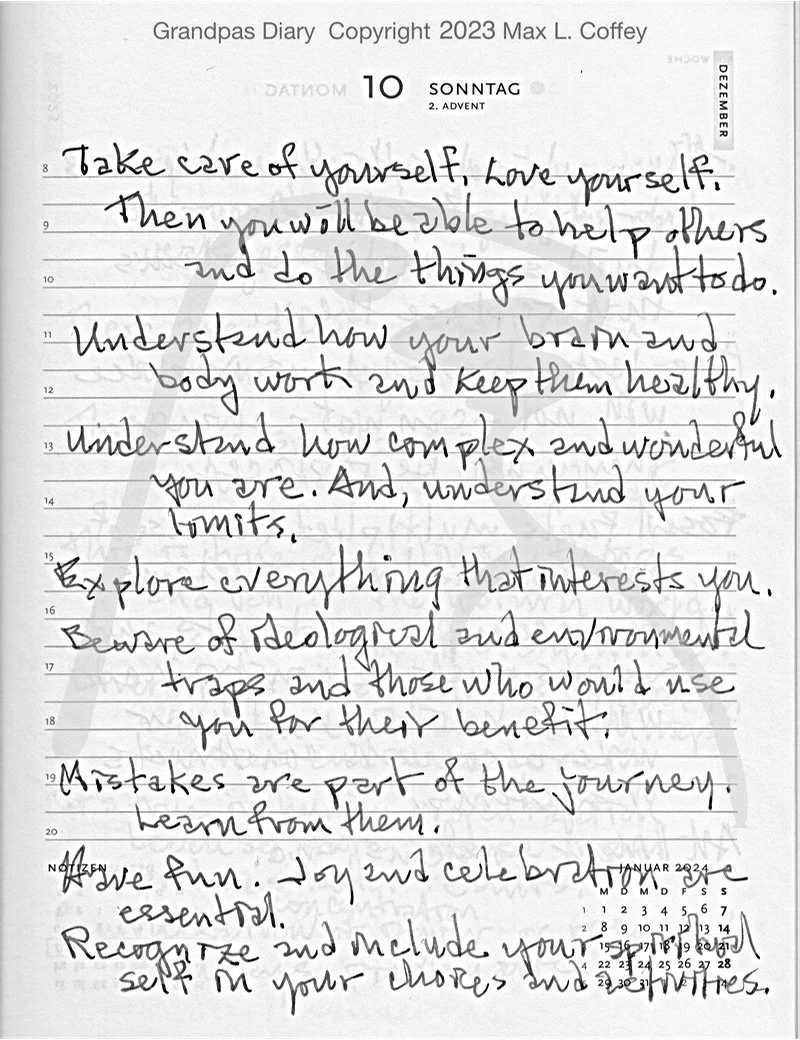 Grandpas Diary Copyright 2023 Max L. Coffey
WOCHE
MONTAG
10 SONNTAG
2. ADVENT
DEZEMBER
8 Take care of yourself. Love yourself.
9 Then you will be able to help others
10 and do the things you want to do.
11 Understand how your brain and
12 body work and keep them healthy.
13 Understand how complex and wonderful
you are. And, understand your
14 limits.
15 Explore everything that interests you.
16 Beware of ideological and environmental
17 traps and those who would use
18 you for their benefit.
19 Mistakes are part of the journey.
20 Learn from them.
NOTIZEN
JANUAR 2024
Have fun. Joy and celebration are
M D M D F S S
essential.
1 1 2 3 4 5 6 7
2 8 9 10 11 12 13 14
Recognize and include your spiritual
15 16 17 18 19 20 21
4 22 23 24 25 26 27 28
self in your choices and activities.
29 30 31